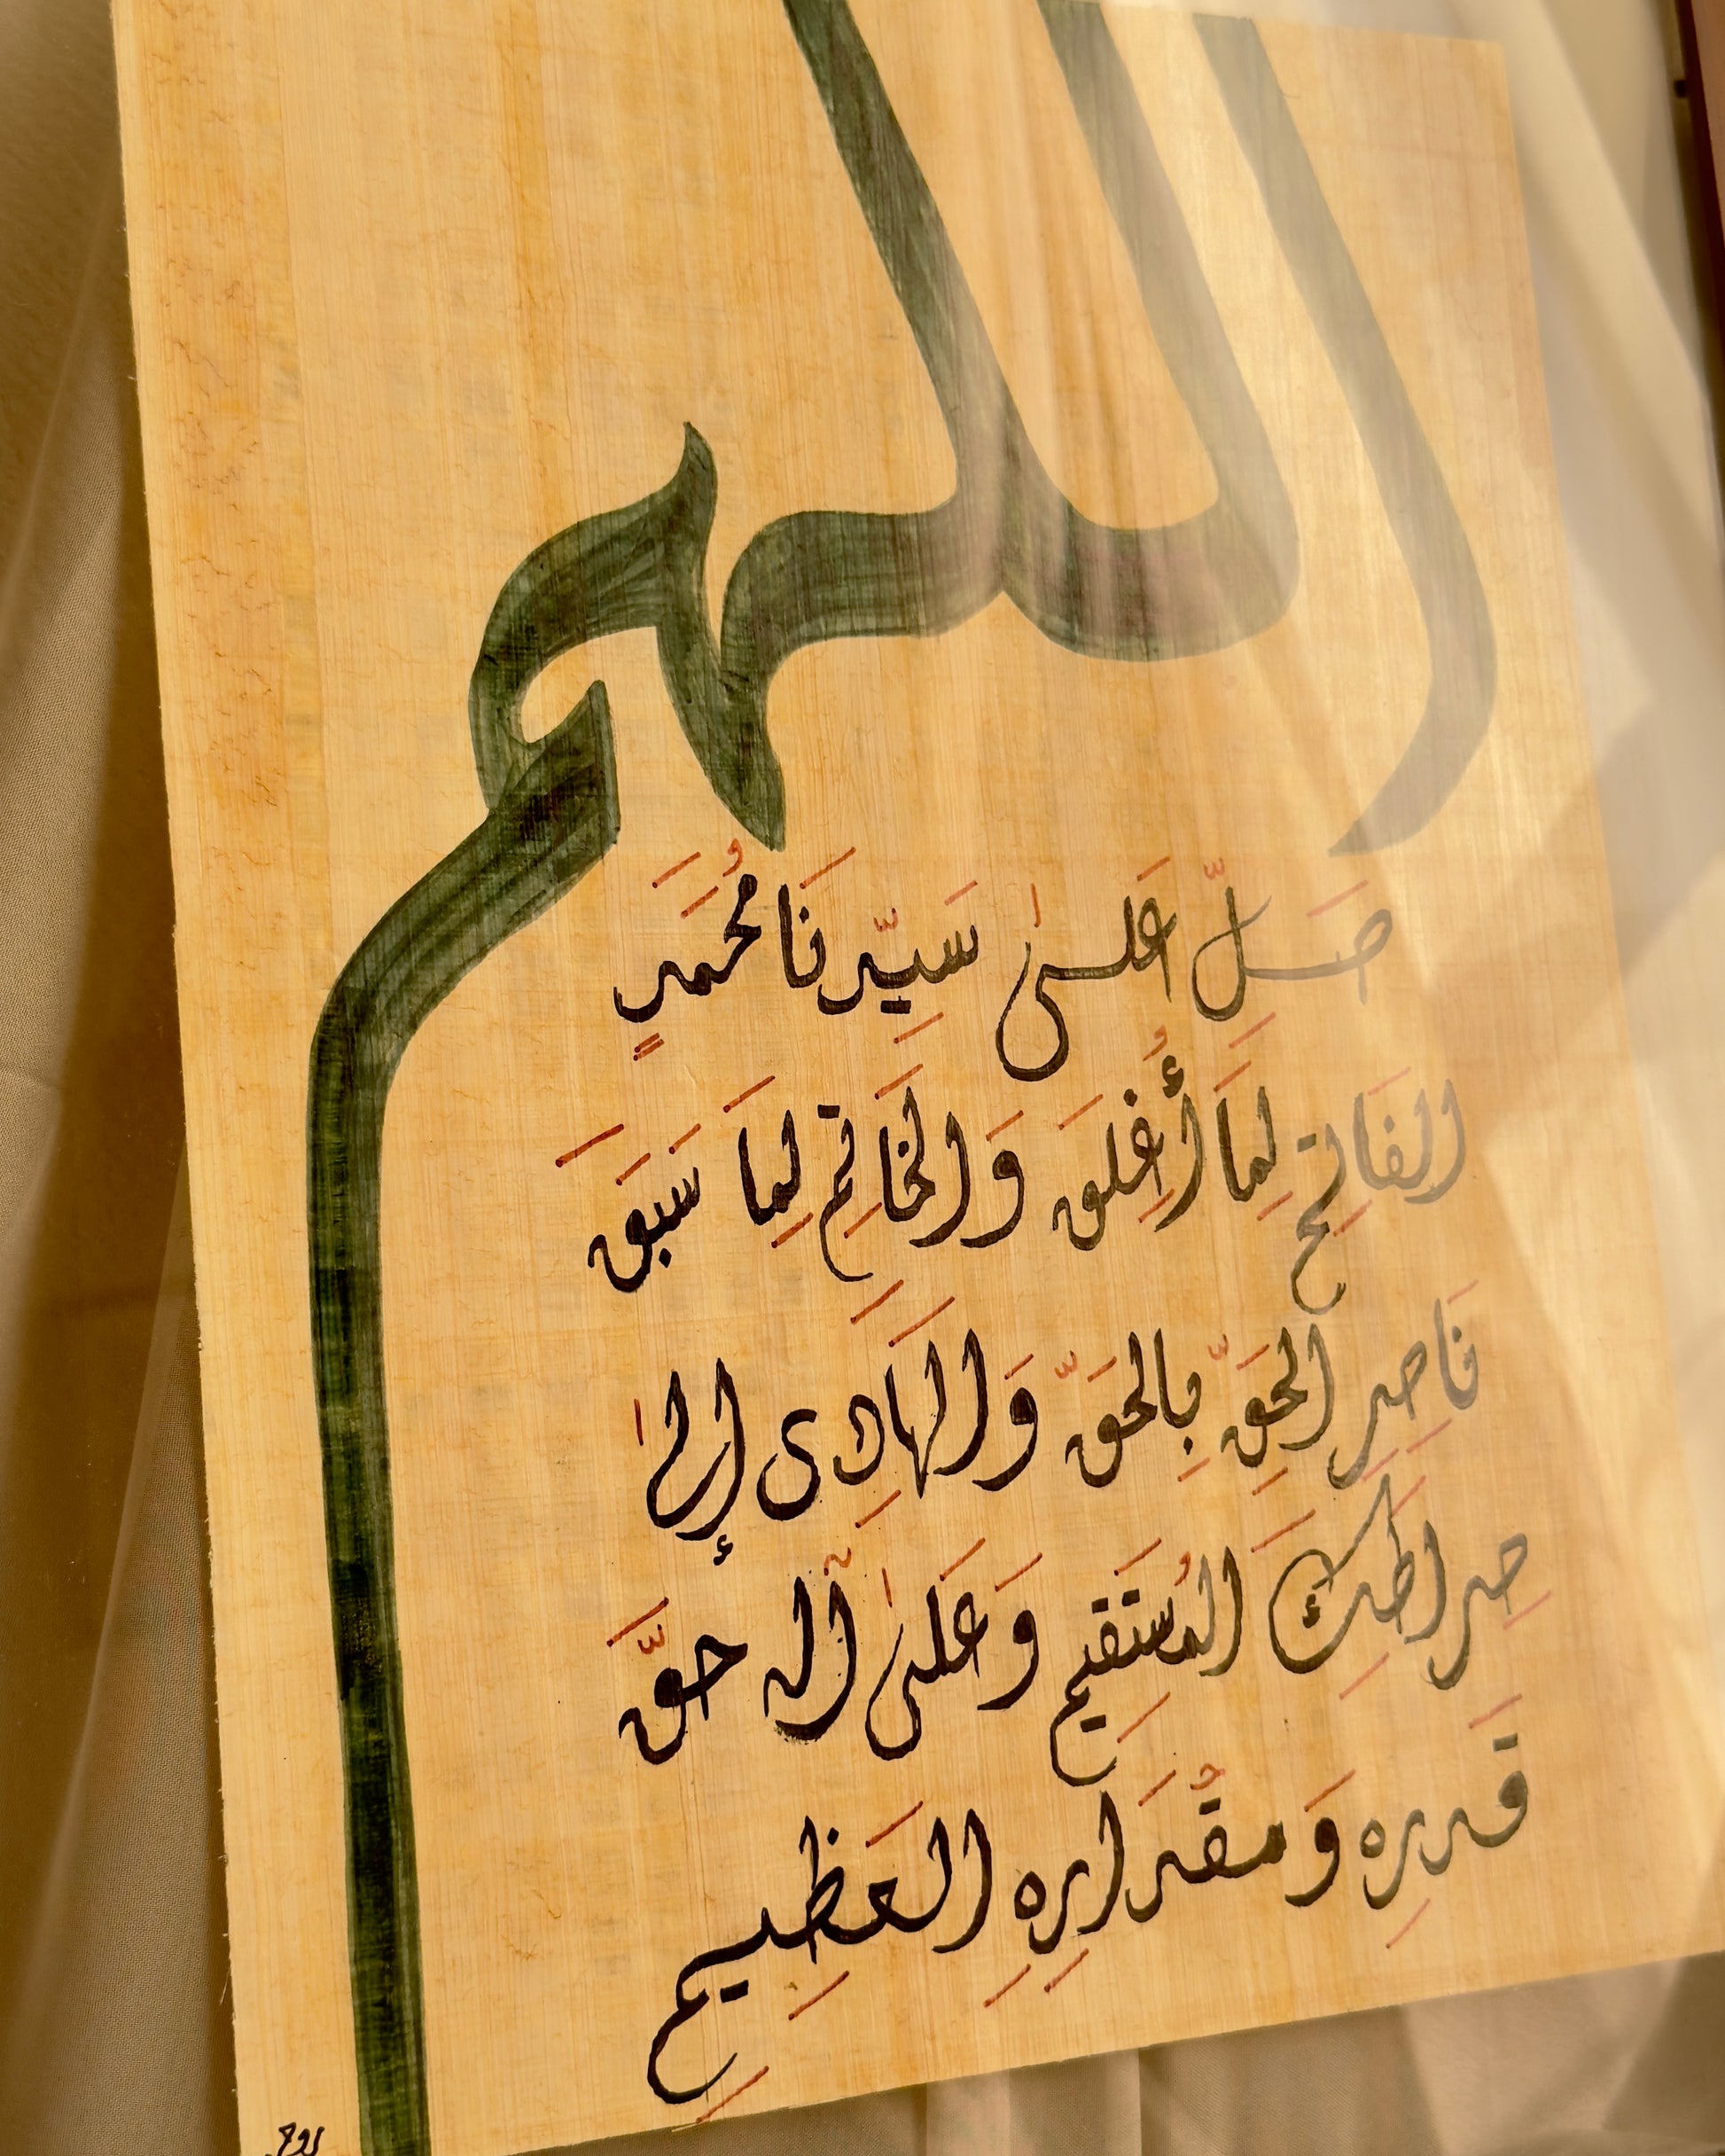 اللهم
صَلِّ عَلىٰ سَيِّدِنَا مُحَمَدٍ
الفَاتِحِ لِمَا أُغلِقَ وَالخَاتِمِ لِمَا سَبَقَ
نَاصِرِ الحَقِّ بِالحَقِّ وَالهَادِى إِلىٰ
صِرَاطِكَ المُستَقِيمِ وَعَلىٰ آلِهِ حَقَّ
قَدرِهِ وَمقدَارِهِ العَظِيمِ